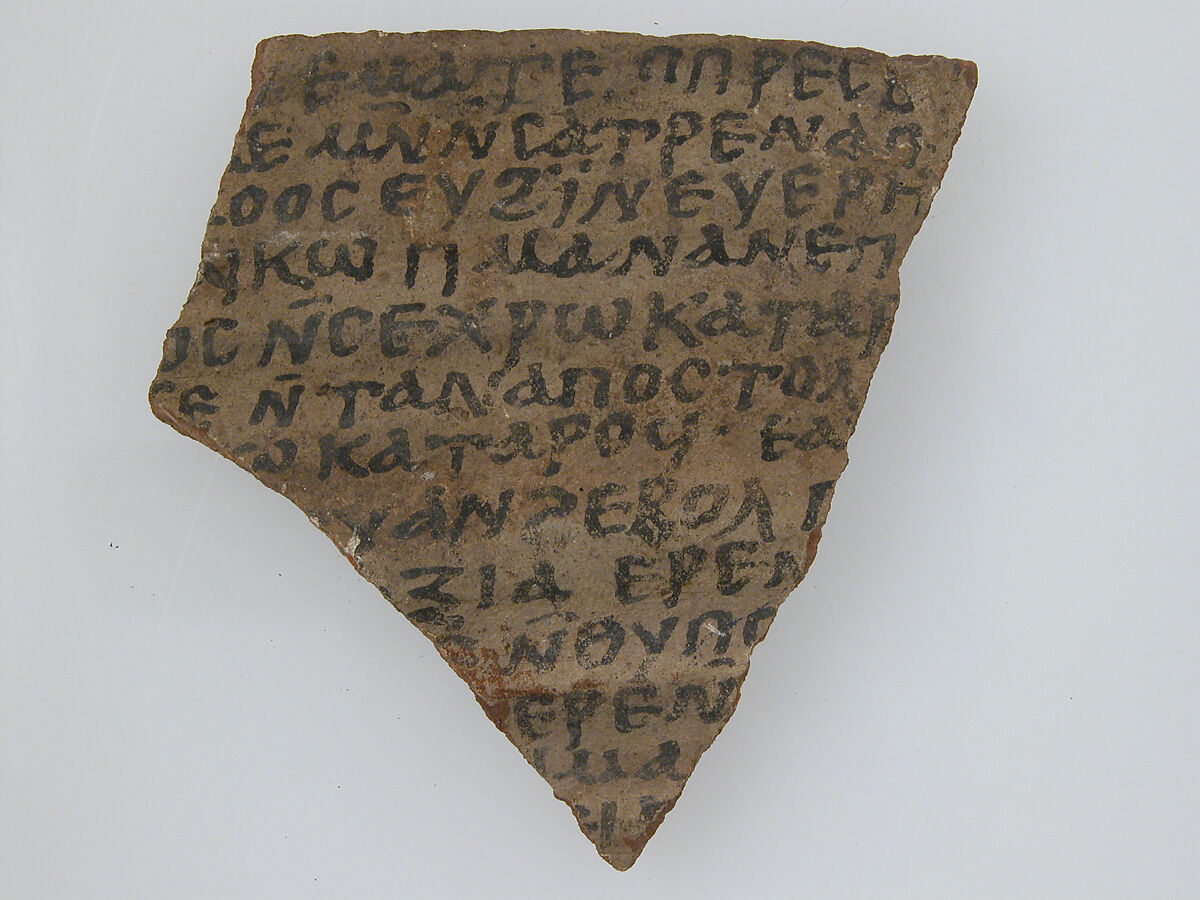 ⲉⲙⲁⲧⲉ ⲡⲡⲣⲉⲥ
ⲇⲉ ⲙⲛ̄ⲛ̄ⲥⲁⲧⲣⲉⲛⲁⲡ
ⲟⲟⲥ ⲉⲩϩⲓ̈ⲛⲉⲩⲉⲣⲏ
ⲛⲕⲱ ⲡⲙⲁⲛⲁⲛⲉⲡ
ⲟⲥ ⲛ̄ⲥⲉⲭⲣⲱ ⲕⲁⲧⲁⲣ
ⲉ ⲛ̄ⲧⲁⲗⲁⲡⲟⲥⲧⲟⲗ
ⲱ ⲕⲁⲧⲁⲣⲟⲩ· ⲉⲁ
ⲩⲁⲛϩⲉⲃⲟⲗ
ⲝⲓⲁ ⲉⲣⲉⲛ
ⲛ̄ⲑⲩⲡⲟ
ⲉⲣⲉⲛ̄
ⲓⲙⲁ
ⲉⲓ